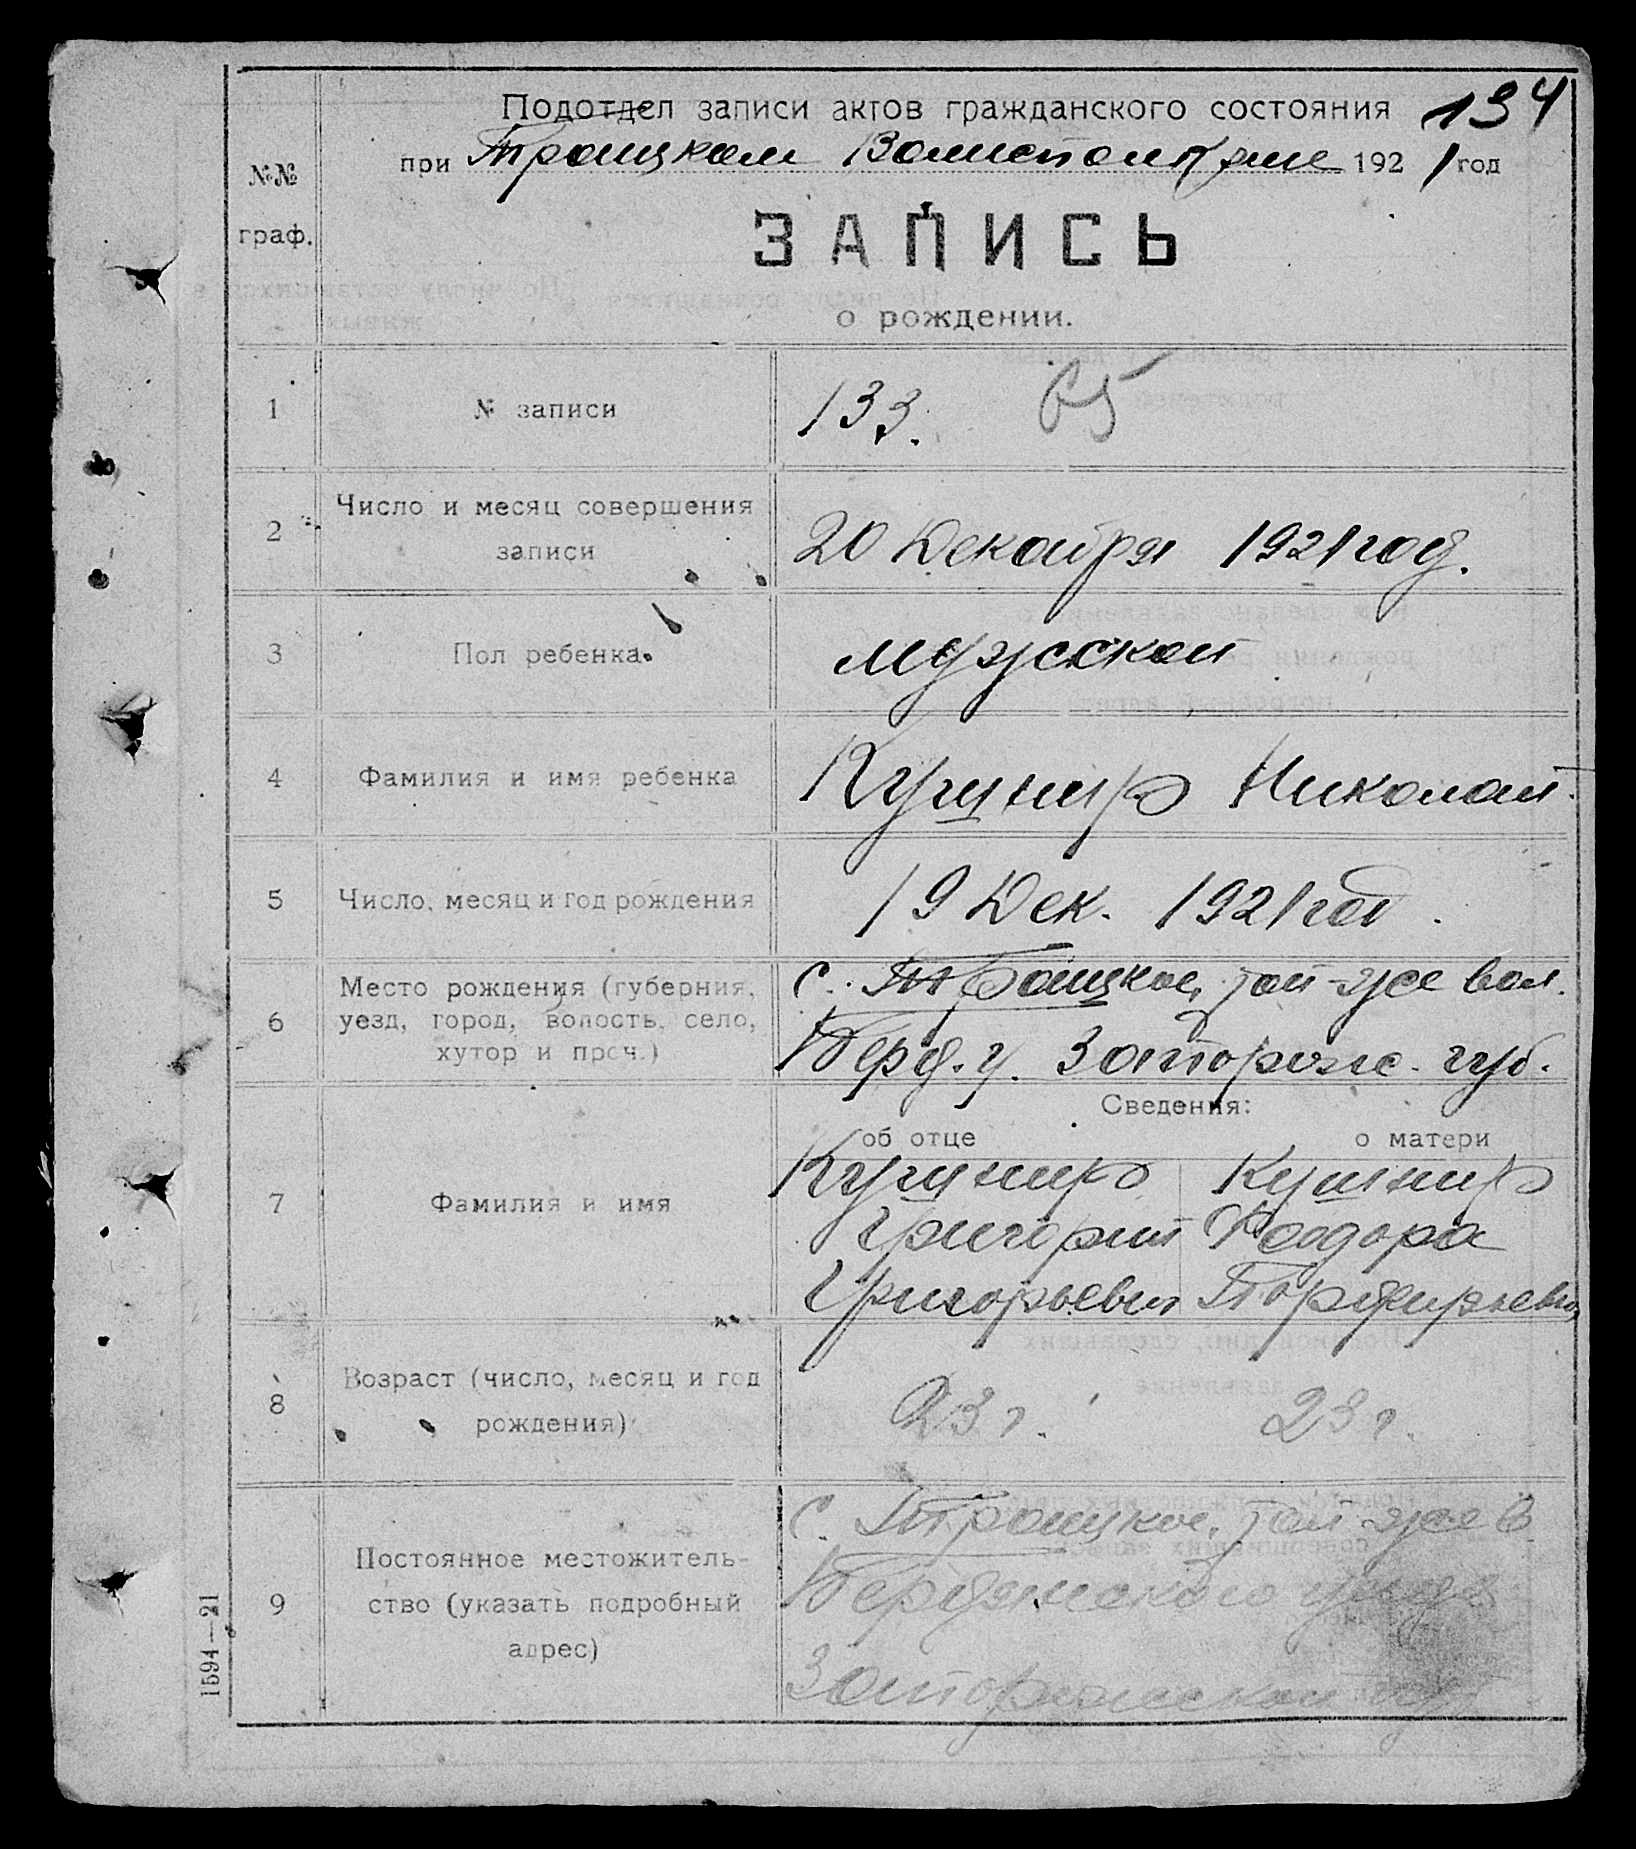 134
Подотдел записи актов гражданского состояния
при Троицком Волисполкоме 1921 год
№№
граф.
ЗАПИСЬ
о рождении.
1 № записи 133. 65
2 Число и месяц совершения
записи
20 Декабря 1921 год.
3 Пол ребенка мужской
4 Фамилия и имя ребенка Кушнир Николай
5 Число, месяц и год рождения 19 Дек. 1921 год.
6 Место рождения (губерния,
уезд, город, волость, село,
хутор и проч.)
с. Троицкое, той-же вол.
Берд. у. Запорож. губ.
Сведения:
об отце о матери
7 Фамилия и имя
Кушнир Кушнир
Григорий Феодора
Григорьевич Порфирьевна
8 Возраст (число, месяц и год
рождения)
23 г. 23 г.
9 Постоянное местожитель-
ство (указать подробный
адрес)
с. Троицкое, той-же в
Бердянского уезда
Запорожской губ
1594—21